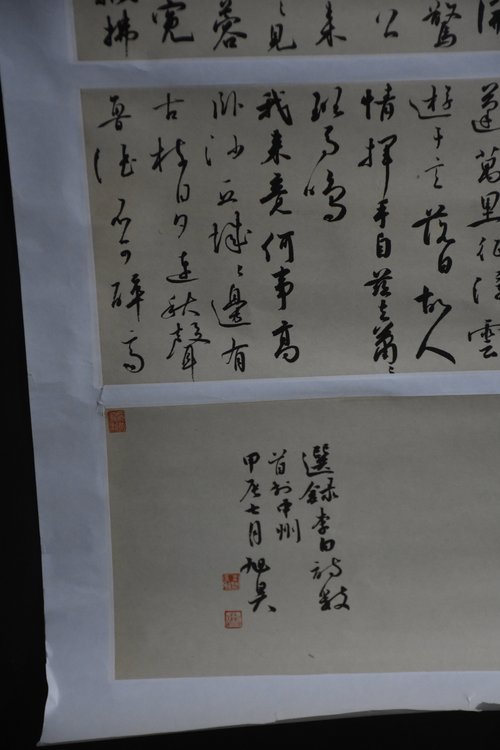 驚
公
来
見
蓉
寬
拂
蓬萬里征浮雲
遊子意落日故人
情揮手自茲去蕭〻
班馬鳴
我来竟何事高
卧沙丘城〻邊有
古樹日夕連秋聲
魯酒不可醉齊
選録李白詩數
首於中州
甲辰七月旭昊